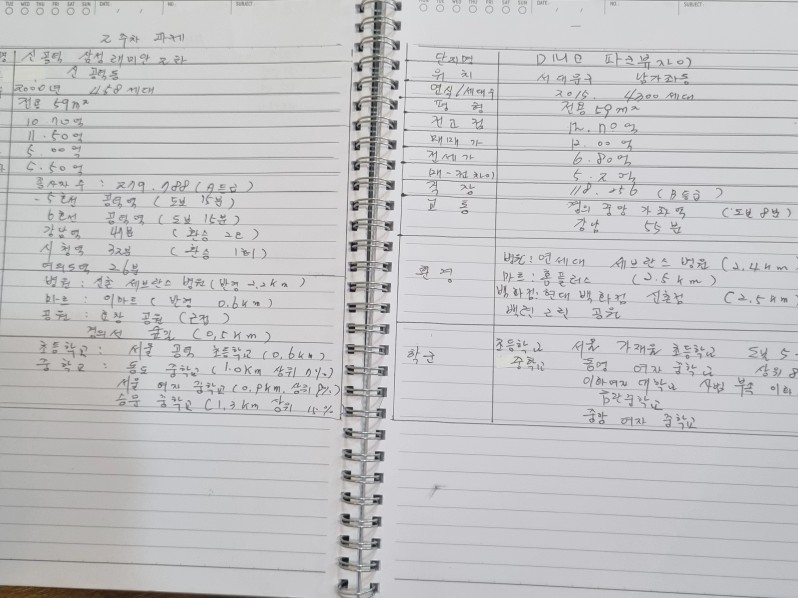 TUE WED THU FRI SAT SUN DATE . . NO. SUBJECT
2 주차 과제
신 공덕 삼성 래미안 2차
신 공덕동
2000년 458세대
전용 59m²
10.70억
11.50억
5 00억
5.50억
종사자 수 : 279.788 (A등급)
- 5호선 공덕역 (도보 15분)
6호선 공덕역 (도보 15분)
강남역 41분 (환승 2회)
시청역 32분 (환승 1회)
여의도역 26분
병원 : 신촌 세브란스 병원 (반경 2.2km)
마트 : 이마트 (반경 0.6km)
공원 : 효창 공원 (근접)
경의선 숲길 (0.5km)
초등학교 : 서울 공덕 초등학교 (0.6km)
중 학교 : 동도 중학교 (1.0km 상위 7%)
서울 여자 중학교 (0.9km, 상위 8%)
숭문 중학교 (1.3km 상위 15%)
MON TUE WED THU FRI SAT SUN DATE . . NO. SUBJECT
단지명 DMC 파크뷰자이
위 치 서대문구 남가좌동
연식/세대수 2015. 4300세대
평 형 전용 59m²
전고점 12.70억
매매가 12.00억
전세가 6.80억
매-전차이 5.2억
직 장 118.256 (B등급)
교 통 경의중앙 가좌역 (도보 8분)
강남 55분
환 경 병원 : 연세대 세브란스 병원 (2.4km)
마트 : 홈플러스 (2.5km)
백화점 : 현대 백화점 신촌점 (2.5km)
백련 근린 공원
학군 초등학교 서울 가재울 초등학교 도보 5
중학교 동명 여자 중학교 상위 8
이화여자 대학교 사범 부속 이화
금란중학교
중앙 여자 중학교